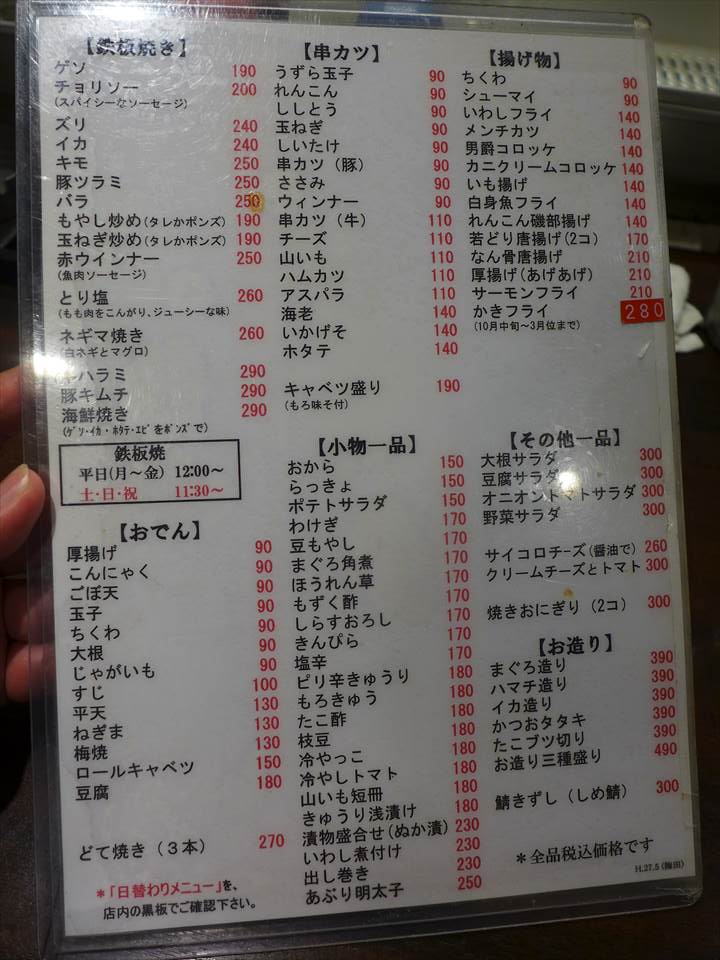 【鉄板焼き】
ゲソ 190
チョリソー 200
(スパイシーなソーセージ)
ズリ 240
イカ 240
キモ 250
豚ツラミ 250
バラ 250
もやし炒め(タレかポンズ) 190
玉ねぎ炒め(タレかポンズ) 190
赤ウインナー 250
(魚肉ソーセージ)
とり塩 260
(もも肉をこんがり、ジューシーな味)
ネギマ焼き 260
(白ネギとマグロ)
ハラミ 290
豚キムチ 290
海鮮焼き 290
(ｹﾞｿ・ｲｶ・ﾎﾀﾃ・ｴﾋﾞをﾎﾟﾝｽﾞで)
鉄板焼
平日(月～金) 12:00～
土・日・祝 11:30～
【おでん】
厚揚げ 90
こんにゃく 90
ごぼ天 90
玉子 90
ちくわ 90
大根 90
じゃがいも 90
すじ 100
平天 130
ねぎま 130
梅焼 130
ロールキャベツ 150
豆腐 180
どて焼き（３本） 270
＊「日替わりメニュー」を、
店内の黒板でご確認下さい。
【串カツ】
うずら玉子 90
れんこん 90
ししとう 90
玉ねぎ 90
しいたけ 90
串カツ（豚） 90
ささみ 90
ウィンナー 90
串カツ（牛） 110
チーズ 110
山いも 110
ハムカツ 110
アスパラ 110
海老 140
いかげそ 140
ホタテ 140
キャベツ盛り 190
(もろ味そ付)
【小物一品】
おから 150
らっきょ 150
ポテトサラダ 150
わけぎ 170
豆もやし 170
まぐろ角煮 170
ほうれん草 170
もずく酢 170
しらすおろし 170
きんぴら 170
塩辛 170
ピリ辛きゅうり 180
もろきゅう 180
たこ酢 180
枝豆 180
冷やっこ 180
冷やしトマト 180
山いも短冊 180
きゅうり浅漬け 180
漬物盛合せ(ぬか漬) 230
いわし煮付け 230
出し巻き 230
あぶり明太子 250
【揚げ物】
ちくわ 90
シューマイ 90
いわしフライ 140
メンチカツ 140
男爵コロッケ 140
カニクリームコロッケ 140
いも揚げ 140
白身魚フライ 140
れんこん磯部揚げ 140
若どり唐揚げ(2コ) 170
なん骨唐揚げ 210
厚揚げ(あげあげ) 210
サーモンフライ 210
かきフライ 280
(10月中旬～3月位まで)
【その他一品】
大根サラダ 300
豆腐サラダ 300
オニオントマトサラダ 300
野菜サラダ 300
サイコロチーズ(醤油で) 260
クリームチーズとトマト 300
焼きおにぎり（2コ） 300
【お造り】
まぐろ造り 390
ハマチ造り 390
イカ造り 390
かつおタタキ 390
たこブツ切り 390
お造り三種盛り 490
鯖きずし（しめ鯖） 300
＊全品税込価格です
H.27.5 (梅田)